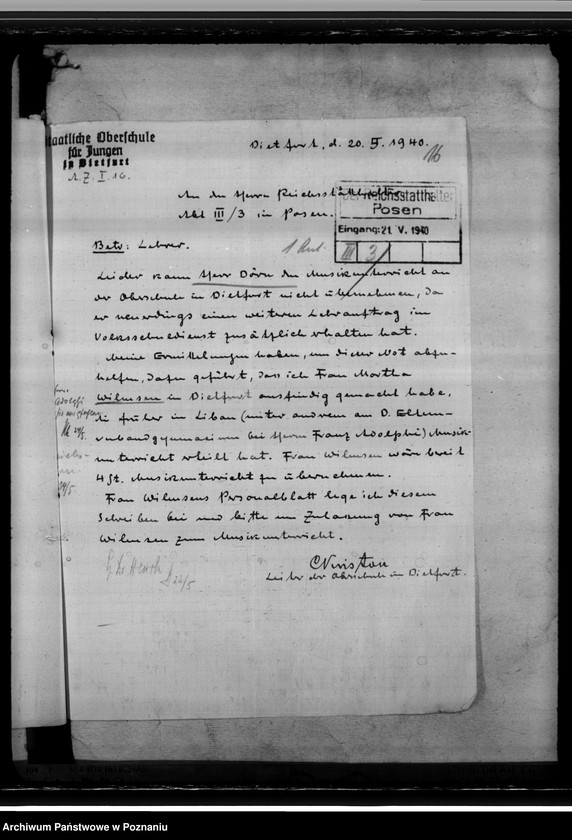 Staatliche Oberschule
für Jungen
in Dietfurt
A.Z. I. 16.
Dietfurt, d. 20. V. 1940.
16
An den Herrn Reichsstatthalter
Abt III/3 in Posen.
Der Reichsstatthalter
Posen
Eingang: 21. V. 1940
III 3
Betr: Lehrer.
Leider kann Herr Dörn den Musikunterricht an
der Oberschule in Dietfurt nicht übernehmen, da
er neuerdings einen weiteren Lehrauftrag im
Volksschuldienst zusätzlich erhalten hat.
Meine Ermittelungen haben, um dieser Not abzu-
helfen, dazu geführt, dass ich Frau Martha
Wilmsen in Dietfurt ausfindig gemacht habe,
die früher in Libau (unter anderem am D. Eltern-
verbandgymnasium bei Herrn Franz Adolphi) Musik-
unterricht erteilt hat. Frau Wilmsen wäre bereit
4 St. Musikunterricht zu übernehmen.
Frau Wilmsens Personalblatt lege ich diesem
Schreiben bei und bitte um Zulassung von Frau
Wilmsen zum Musikunterricht.
Leiter der Oberschule in Dietfurt.
22/5
Archiwum Państwowe w Poznaniu